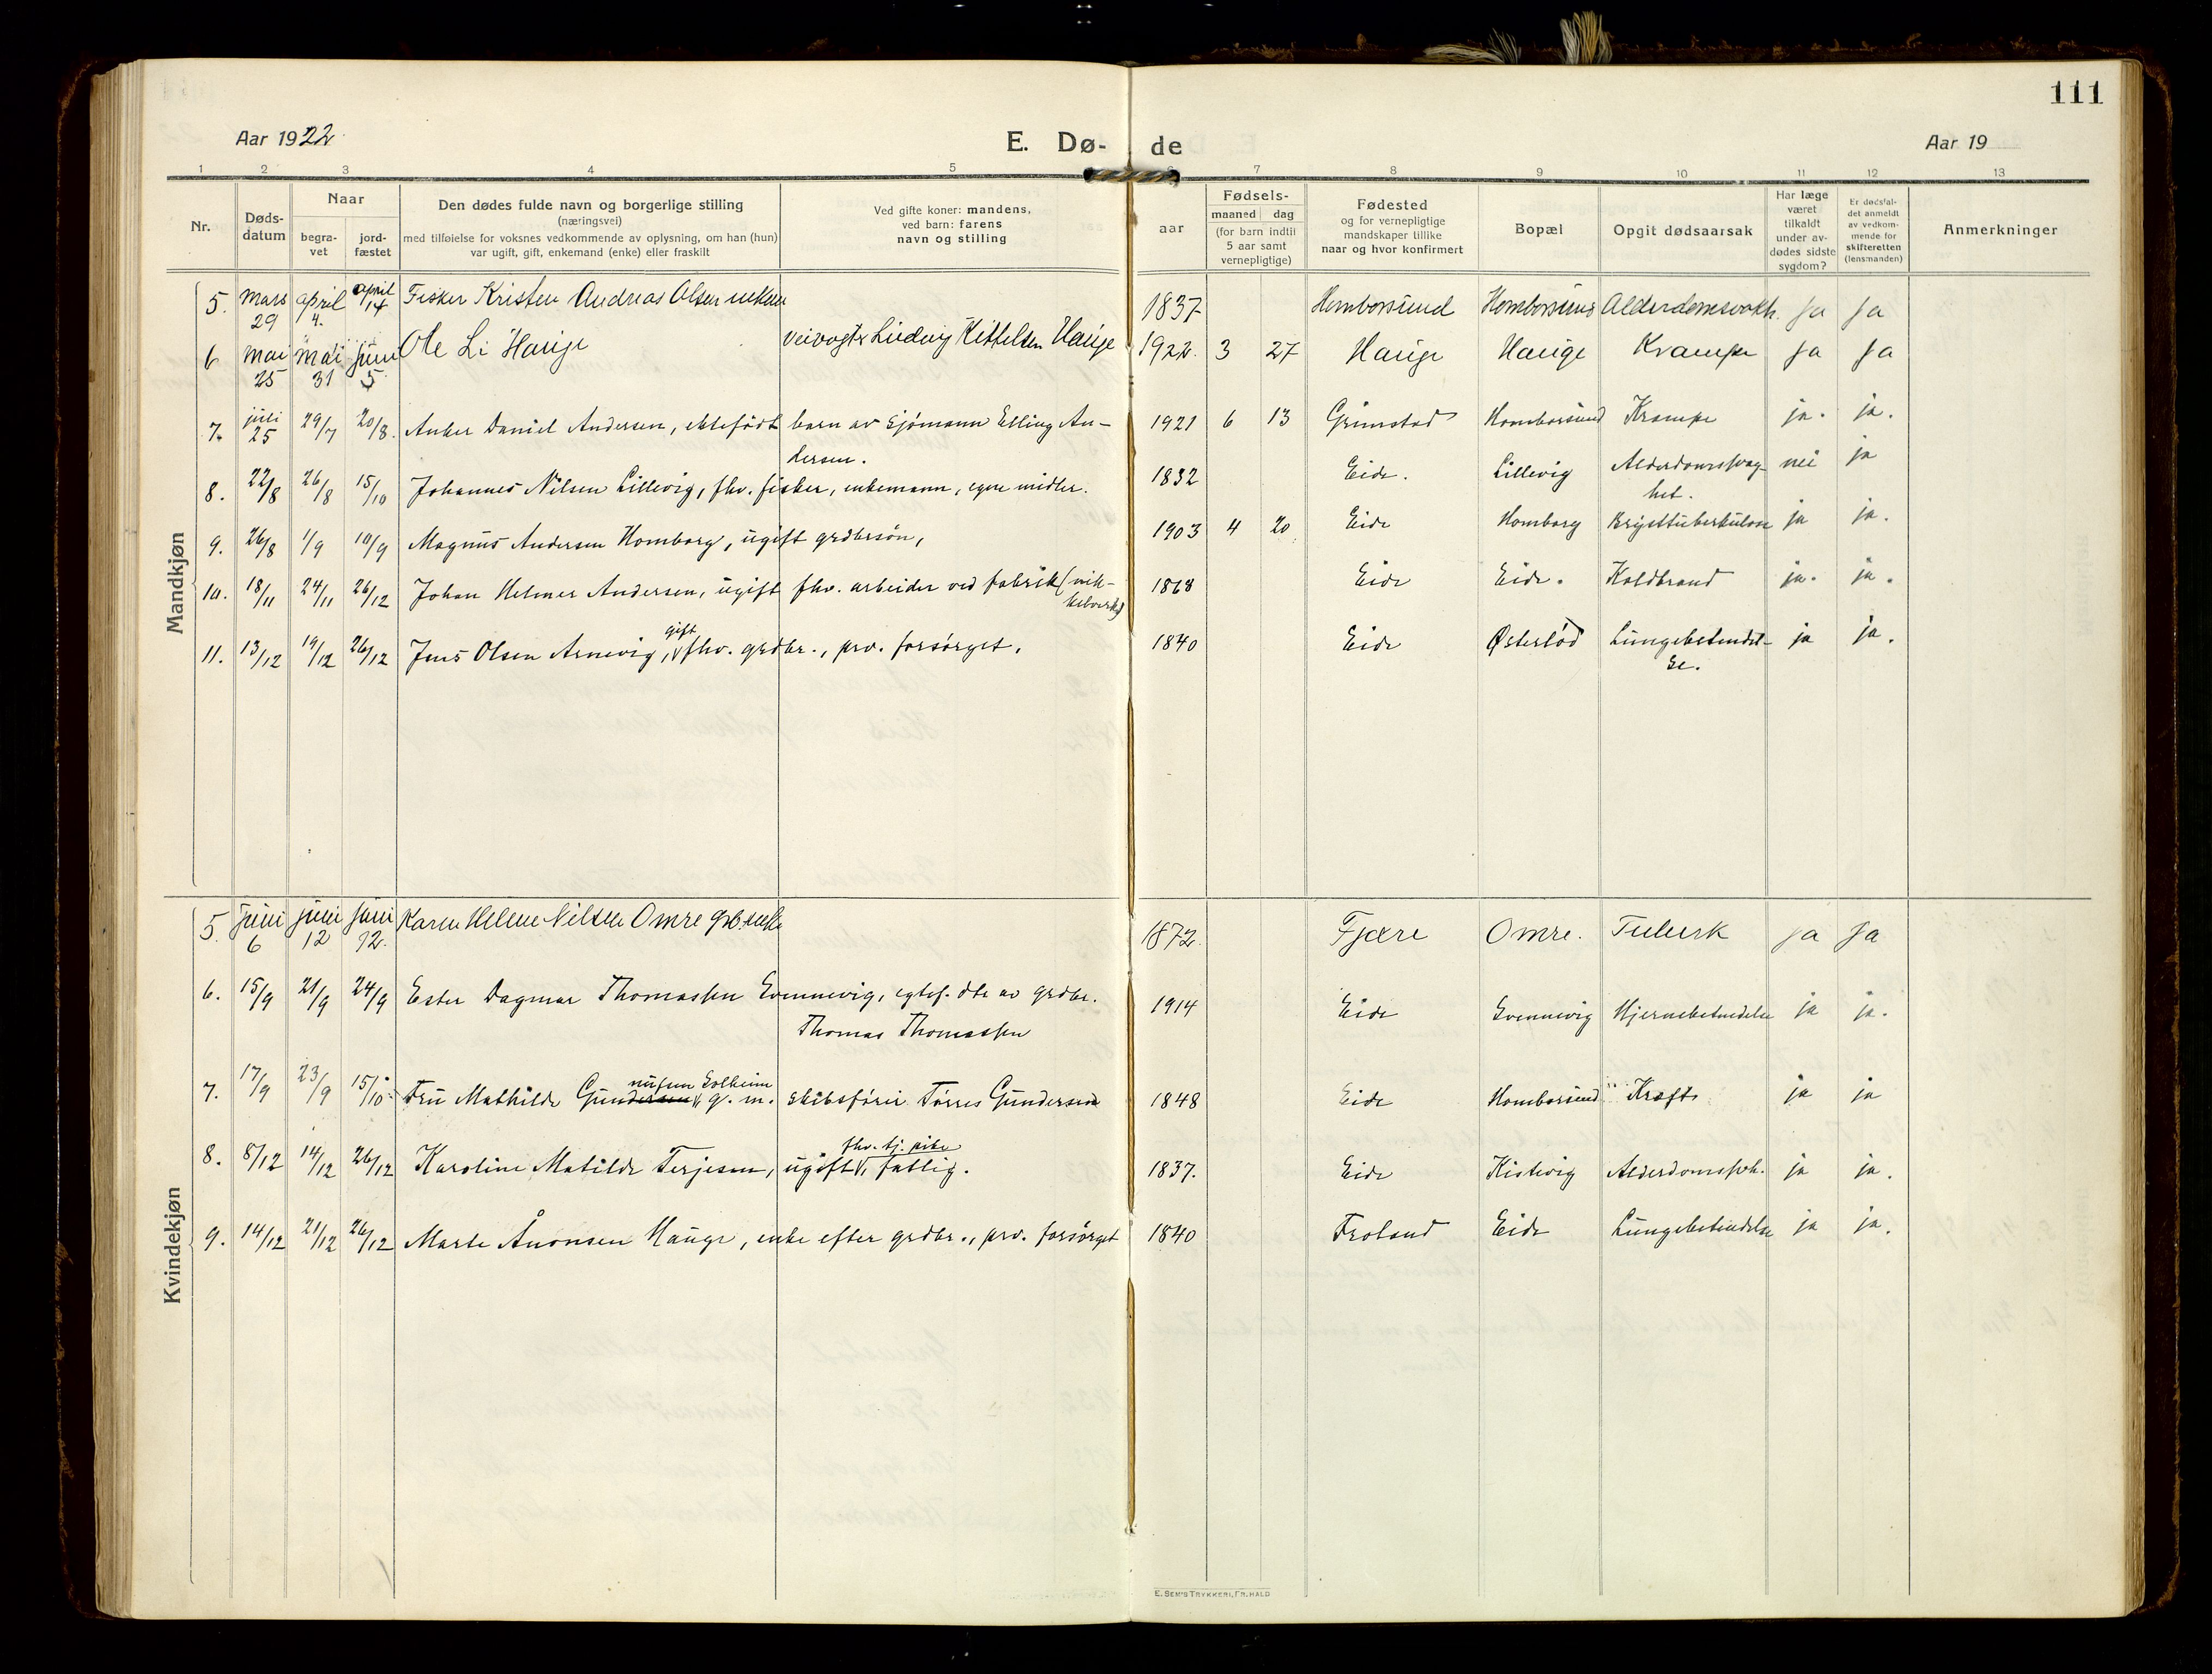 111
Aar 1922
E. Dø- de
Aar 19
1 2 3 4 5 6 7 8 9 10 11 12 13
Nr.
Døds-
datum
Naar
begra-
vet
jord-
fæstet
Den dødes fulde navn og borgerlige stilling
(næringsvei)
med tilføielse for voksnes vedkommende av oplysning, om han (hun)
var ugift, gift, enkemand (enke) eller fraskilt
Ved gifte koner: mandens,
ved barn: farens
navn og stilling
Fødsels-
aar
maaned dag
(for barn indtil
5 aar samt
vernepligtige)
Fødested
og for vernepligtige
mandskaper tillike
naar og hvor konfirmert
Bopæl
Opgit dødsaarsak
Har læge
været
tilkaldt
under av-
dødes sidste
sygdom?
Er dødsfal-
det anmeldt
av vedkom-
mende for
skifteretten
(lensmanden)
Anmerkninger
Mandkjøn
5. mars 29 april 4. april 14 Fisker Kristen Andreas Olsen 1837 Homborsund Homborsund Alderdomssvakh. Ja Ja
6 mai 25 mai 31 juni 5 Ole Li Hauge veivogter Ludvig Kittelsen Hauge 1922. 3 27 Hauge Hauge Krampe Ja Ja
7. juli 25 29/7 20/8. Anker Daniel Andersen, ektefødt barn av sjømann Elling An- 1921 6 13 Grimstad Homborsund Krampe ja. ja.
dersen.
8. 22/8 26/8 15/10 Johannes Nilsen Lillevig, fhv. fisker, enkemann, egne midler. 1832 Eide. Lillevig Alderdomssvag- nei ja
het.
9. 26/8 1/9 10/9 Magnus Andersen Homborg, ugift grdbrsøn, 1903 4 20 Eide Homborg Brysttuberkulose ja ja.
10. 18/11 24/11 26/12 Johan Helmer Andersen, ugift fhv. arbeider ved fabrik (nik- 1868 Eide Eide. Koldbrand ja. ja.
kelverk)
11. 13/12 19/12 26/12 Jens Olsen Arnevig, gift fhv. grdbr., prv. forsørget. 1840 Eide Østerlød Lungebetendel- ja ja.
se.
Kvindekjøn
5. juni 6 juni 12 juni 12. Karen Helene Nilsen Omre 1872. Fjære Omre. Tuberk Ja Ja
6. 15/9 21/9 24/9 Ester Dagmar Thomassen Evennevig, egtef. dtr av grdbr. 1914 Eide Evennevig Hjernebetendelse ja ja.
Thomas Thomassen
7. 17/9 23/9 15/10 Fru Mathilde Gundersen Solheim g. m. skibsfører Tørres Gundersen 1848 Eide Homborsund Kræft ja ja
8. 8/12 14/12 26/12 Karoline Matilde Terjesen, ugift, fhv. tj. pike fattig. 1837. Eide Kistevig Alderdomssvh. ja ja.
9. 14/12 21/12 26/12 Marte Ånonsen Hauge, enke efter grdbr., prv. forsørget 1840 Froland Eide Lungebetendelse ja ja.
E. SEM'S TRYKKERI, FR.HALD